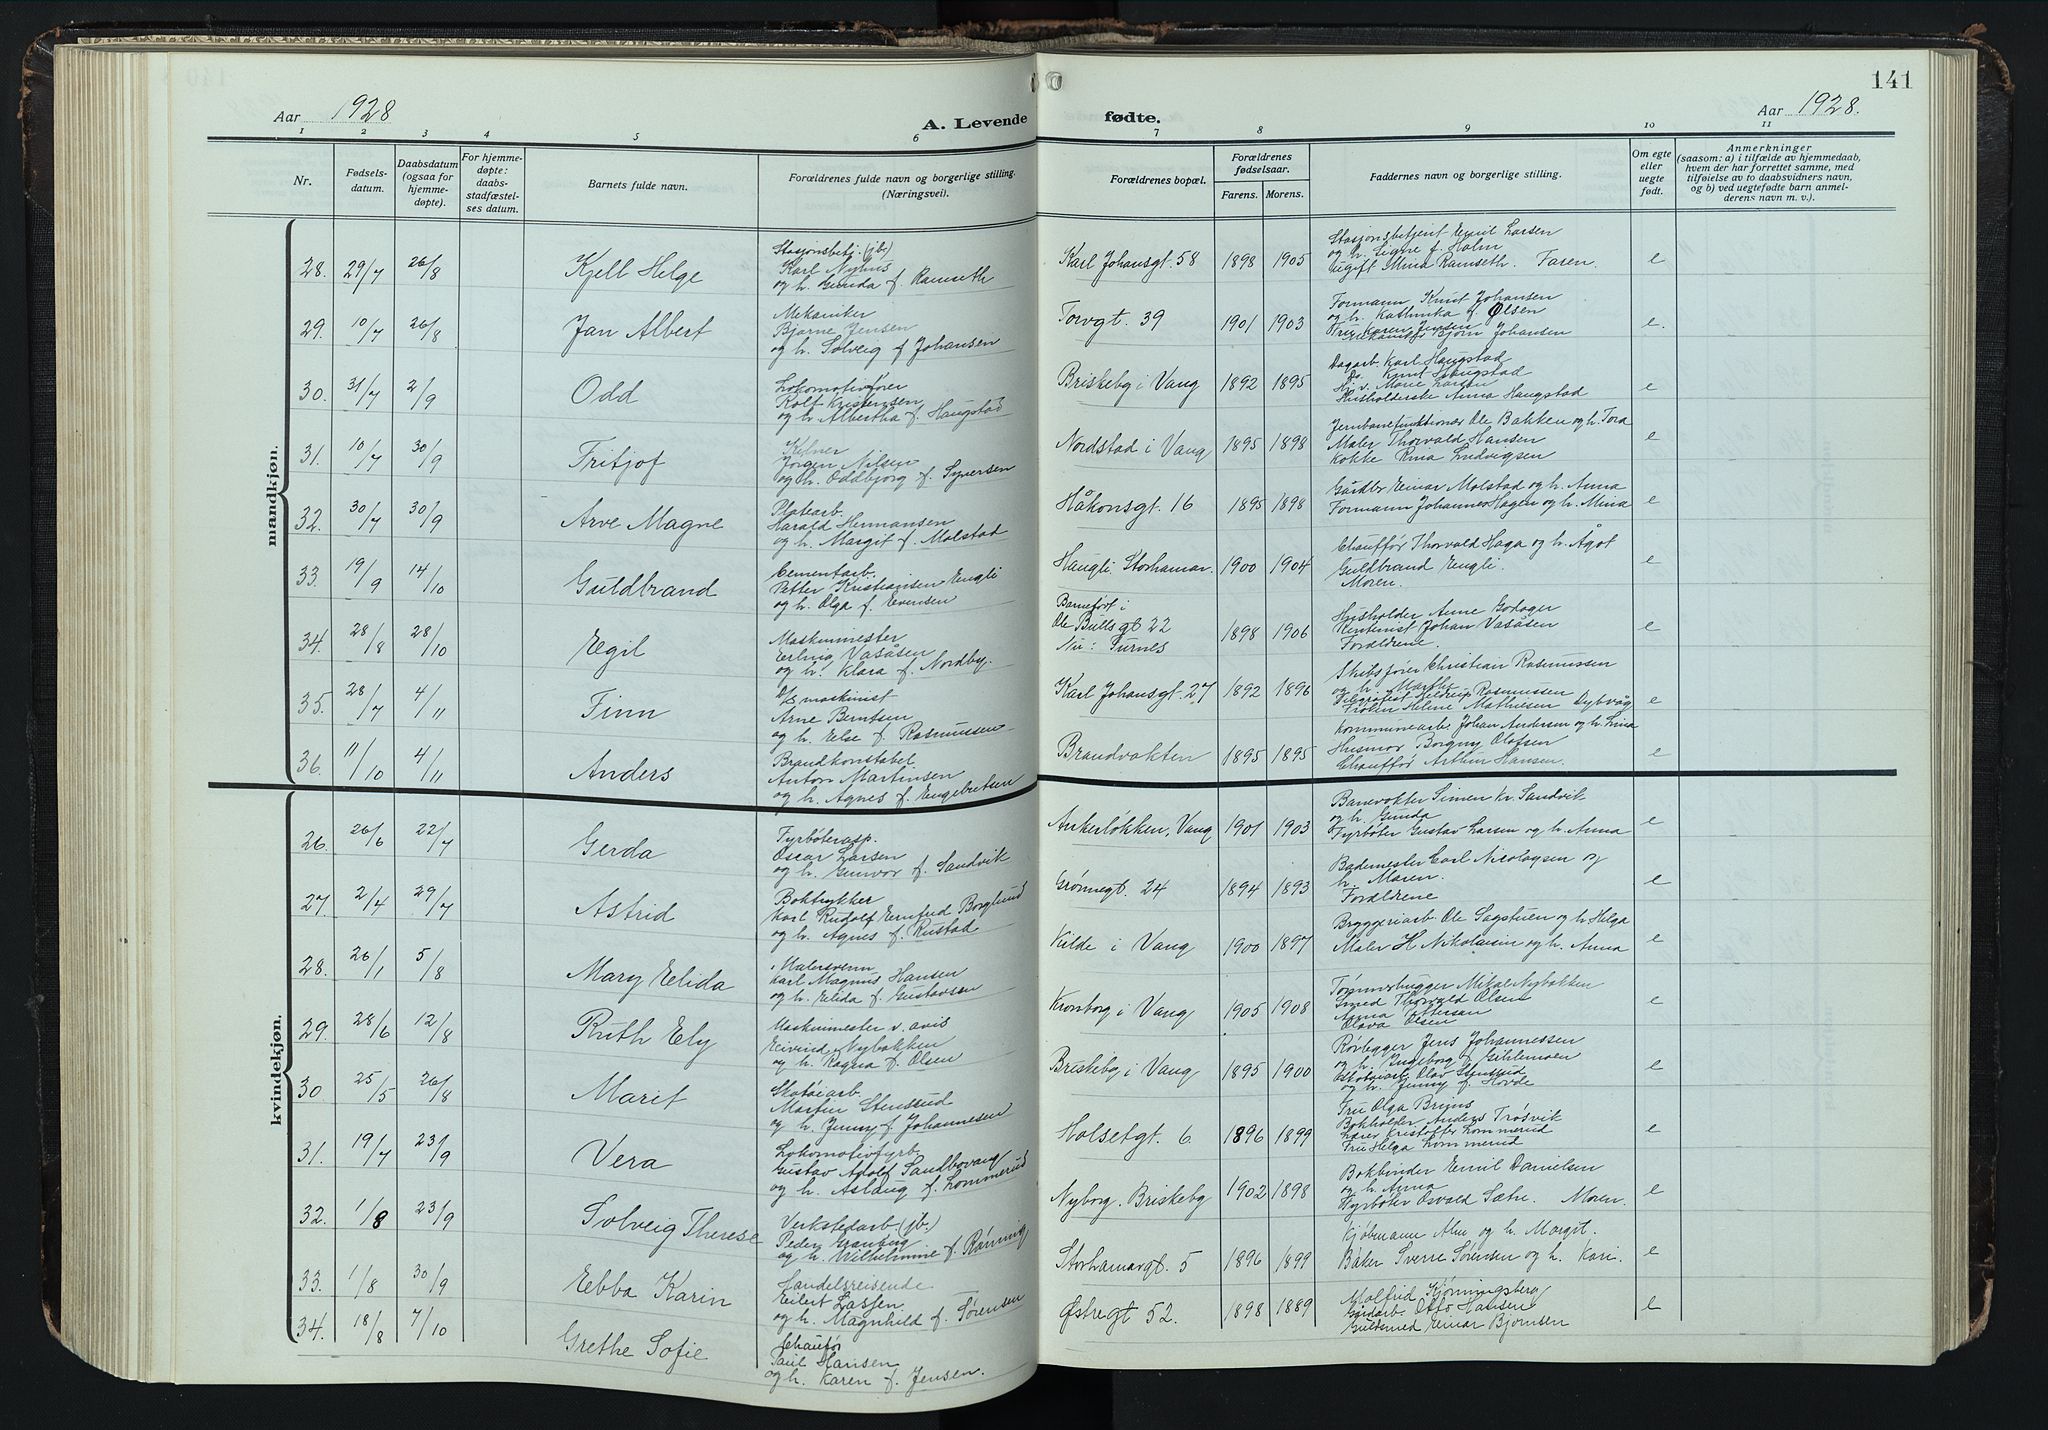 Aar 1928
A. Levende
1 2 3 4 5 6
Nr.
Fødsels-
datum.
Daabsdatum
(ogsaa for
hjemme-
døpte).
For hjemme-
døpte:
daabs-
stadfæstel-
ses datum.
Barnets fulde navn.
Forældrenes fulde navn og borgerlige stilling.
(Næringsvei).
mandkjøn.
28. 29/7 26/8 Kjell Helge
Stasjonsbetj. (jb.)
Karl Nyhus
og h. Gunda f. Ramseth
29. 10/7 26/8 Jan Albert
Mekaniker
Bjarne Jensen
og h. Solveig f. Johansen
30. 31/7 2/9 Odd
Lokomotivfører
Rolf Kristensen
og h. Albertha f. Haugstad
31. 10/7 30/9 Fritjof
Kelner
Jørgen Nilsen
og h. Oddbjørg f. Syversen
32. 30/7 30/9 Arve Magne
Platearb.
Harald Hermansen
og h. Margit f. Molstad
33. 19/9 14/10 Guldbrand
Cementarb.
Petter Kristiansen Engli
og h. Olga f. Evensen
34. 28/8 28/10 Egil
Maskinmester
Erling Vasåsen
og h. Klara f. Nordby.
35. 28/7 4/11 Finn
D/S maskinist
Arne Berntsen
og h. Else f. Rasmussen
36. 11/10 4/11 Anders
Brandkonstabel
Anton Martinsen
og h. Agnes f. Engebretsen
kvindekjøn.
26. 26/6 22/7 Gerda
Fyrbøterasp.
Oscar Larsen
og h. Gunvor f. Sandvik
27. 2/4 29/7 Astrid
Boktrykker
Karl Rudolf Ernfrid Borglund
og h. Agnes f. Rustad
28. 26/1 5/8 Mary Elida
Malersvenn
Karl Magnus Hansen
og h. Elida f. Gustavsen
29. 28/6 12/8 Ruth Ely
Maskinmester v. avis
Eivind Nybakken
og h. Ragna f. Olsen
30 25/5 26/8 Marit
Skotøiarb
Martin Stensrud
og h. Jenny f. Johannesen
31. 19/7 23/9 Vera
Lokomotivfyrb.
Gustav Adolf Sandbovang
og h. Aslaug f. Lommerud
32. 1/8 23/9 Solveig Therese
Verkstedarb (jb.)
Peder Granberg
og h. Wilhelmine f. Rønning
33. 1/8 30/9 Ebba Karin
Handelsreisende
Eilert Lassen
og h. Magnhild f. Sørensen
34. 18/8 7/10 Grethe Sofie
Chauffør
Paul Hansen
og h. Karen f. Jensen.
141
Aar 1928.
fødte.
7 8 9 10 11
Forældrenes bopæl.
Forældrenes
fødselsaar.
Farens. Morens.
Faddernes navn og borgerlige stilling.
Om egte
eller
uegte
født.
Anmerkninger
(saasom: a) i tilfælde av hjemmedaab,
hvem der har forrettet samme, med
tilføielse av to daabsvidners navn,
og b) ved uegtefødte barn anmel-
derens navn m. v.).
Karl Johansgt. 58 1898 1905
Stasjonsbetjent Emil Larsen
og h. Signe f. Holm
Ugift Mina Ramseth. Faren. e
Torvgt. 39 1901 1903
Formann Knut Johansen
og h. Kathinka f. Olsen
Fru Karen Jensen
Bjørn Johansen e.
Briskeby i Vang 1892 1895
Dagarb. Karl Haugstad
Do. Knut Haugstad
Marie Larsen
Husholderske Anna Haugstad e
Nordstad i Vang 1895 1898
Jernbanefunktionær Ole Bakken og h. Tora
Maler Thorvald Hansen
Kokke Rina Ludvigsen e
Håkonsgt. 16 1895 1898
Gårdbr Einar Molstad og h. Anna
Formann Johannes Hagen og h. Mina e
Haugli Storhamar. 1900 1904
Chauffør Thorvald Haga og h. Ågot
Guldbrand Engli
Moren. e
Barnefødt i
Ole Bullsgt 22
Nu: Furnes 1898 1906
Husholder Anne Godager
Rentenist Johan Vasåsen
Foreldrene e
Karl Johansgt. 27 1892 1896
Skibsfører Christian Rasmussen
og h. Marthe
Rasmussen
Frøken Helene Mathiesen Dybvåg e
Brandvakten 1895 1895
Kommunearb. Johan Andersen og h. Lina
Husmor Borgny Olafsen
Chauffør Arthur Hansen. e
Ankerløkken, Vang 1901 1903
Banevokter Simen Kr. Sandvik
og h. Gunda
Fyrbøter Gustav Larsen og h. Anna e
Grønnegt. 24 1894 1893
Bademester Carl Nicolaysen og
h. Maren.
Foreldrene e
Kilde i Vang 1900 1897
Bryggeriarb. Ole Sagstuen og h. Helga
Maler H Nikolaisen og h. Anna e
Kronborg i Vang 1905 1908
Tømmerhugger Mikal Nybakken
Smed Thorvald Olsen
Anna Pettersen
Olava Olsen e
Briskeby i Vang 1895 1900
Rørlegger Jens Johannessen
og h. Ingeborg f. Gihlemoen
Skotøiarb Olav Stensrud
og h. Jenny f. Hovde e
Holsetgt. 6 1896 1899
Fru Olga Bruns
Bokholder Anders Trosvik
Lærer Kristoffer Lommerud
Fru Helga Lommerud e
Nyborg. Briskeby 1902 1898
Bokbinder Emil Danielsen
og h. Anna
Fyrbøter Osvald Sætre. Moren. e
Storhamargt. 5 1896 1899
Kjøbmann Alm og h. Margit.
Baker Sverre Sørensen og h. Kari. e
Østregt 52. 1898 1889
Malfrid Kjønningsberg
Gårdarb. Otto Hansen
Guldsmed Einar Bjørnsen e